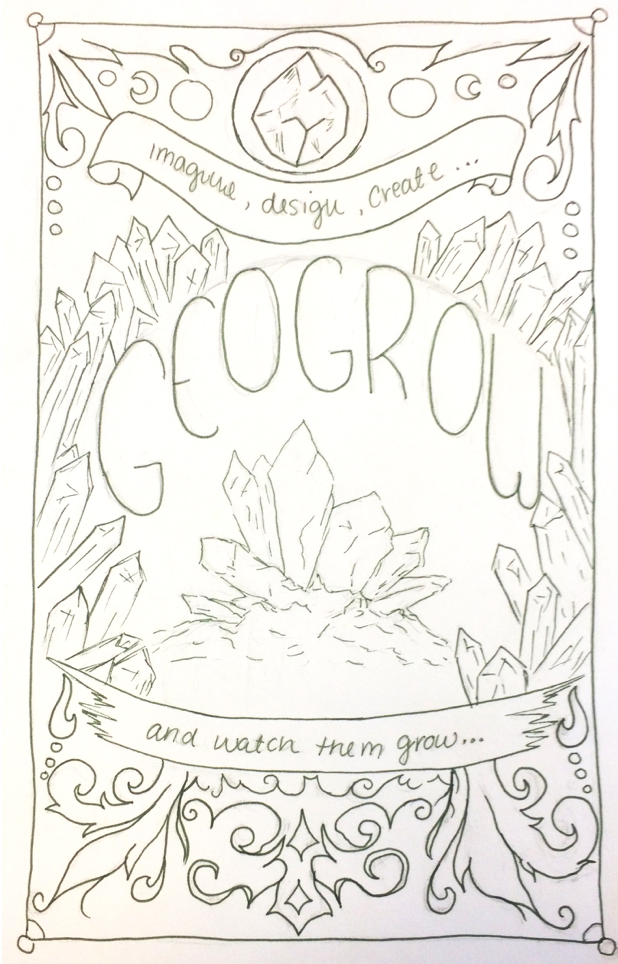 imagine, design, create...
GEOGROW
and watch them grow...